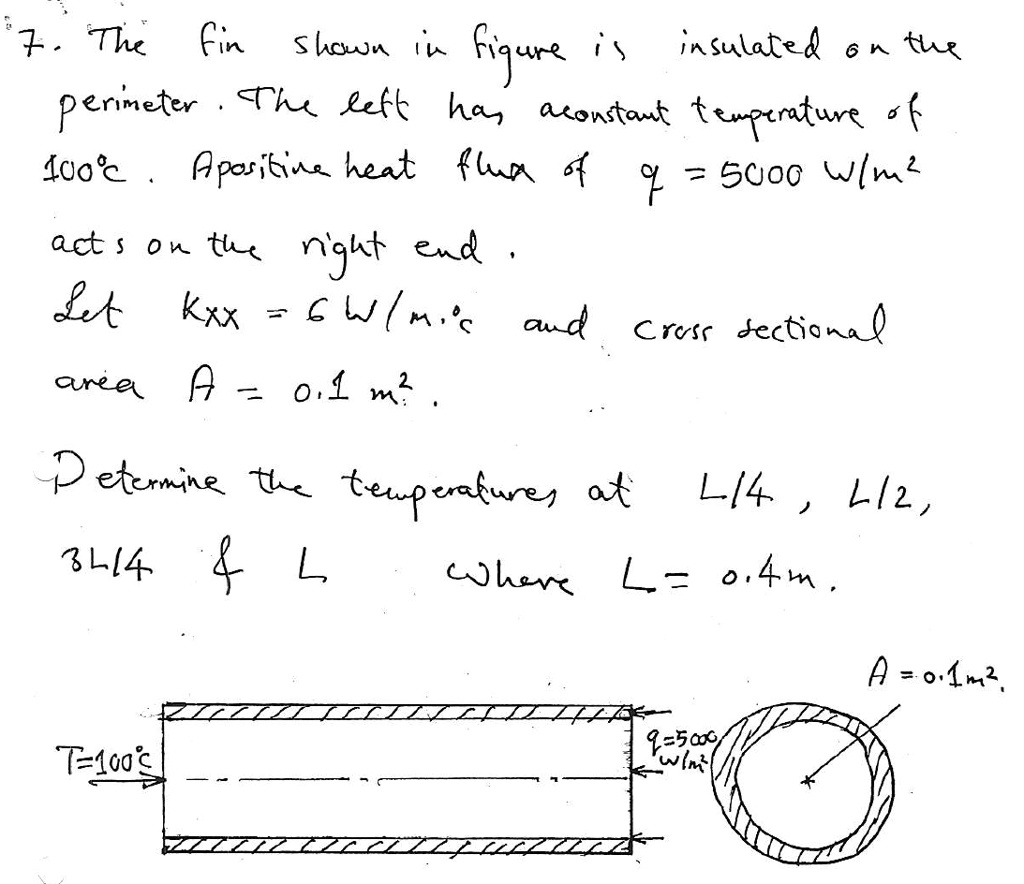 7. The fin shown in figure is insulated on the
perimeter. The left has aconstant temperature of
100°c. Apositive heat flux of q = 5000 W/m²
acts on the right end.
Let Kxx = 6 W/m.°c and cross sectional
area A = 0.1 m².
Determine the temperatures at L/4, L/2,
3L/4 & L where L = 0.4m.
A = 0.1m².
T=100°c
q=5000
w/m²